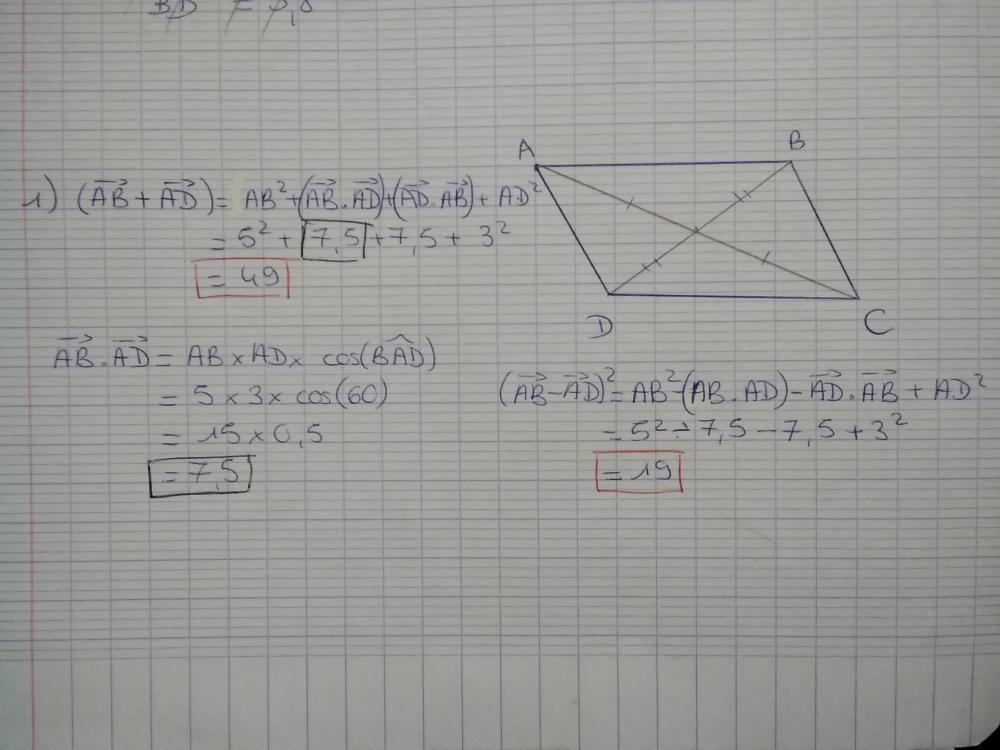 1) (AB⃗ + AD⃗) = AB² + (AB⃗.AD⃗) + (AD⃗.AB⃗) + AD²
= 5² + 7,5 + 7,5 + 3²
= 49
A
B
D
C
AB⃗.AD⃗ = AB × AD × cos(BÂD)
= 5 × 3 × cos(60)
= 15 × 0,5
= 7,5
(AB⃗ - AD⃗)² = AB² - (AB.AD) - AD⃗.AB⃗ + AD²
= 5² - 7,5 - 7,5 + 3²
= 19